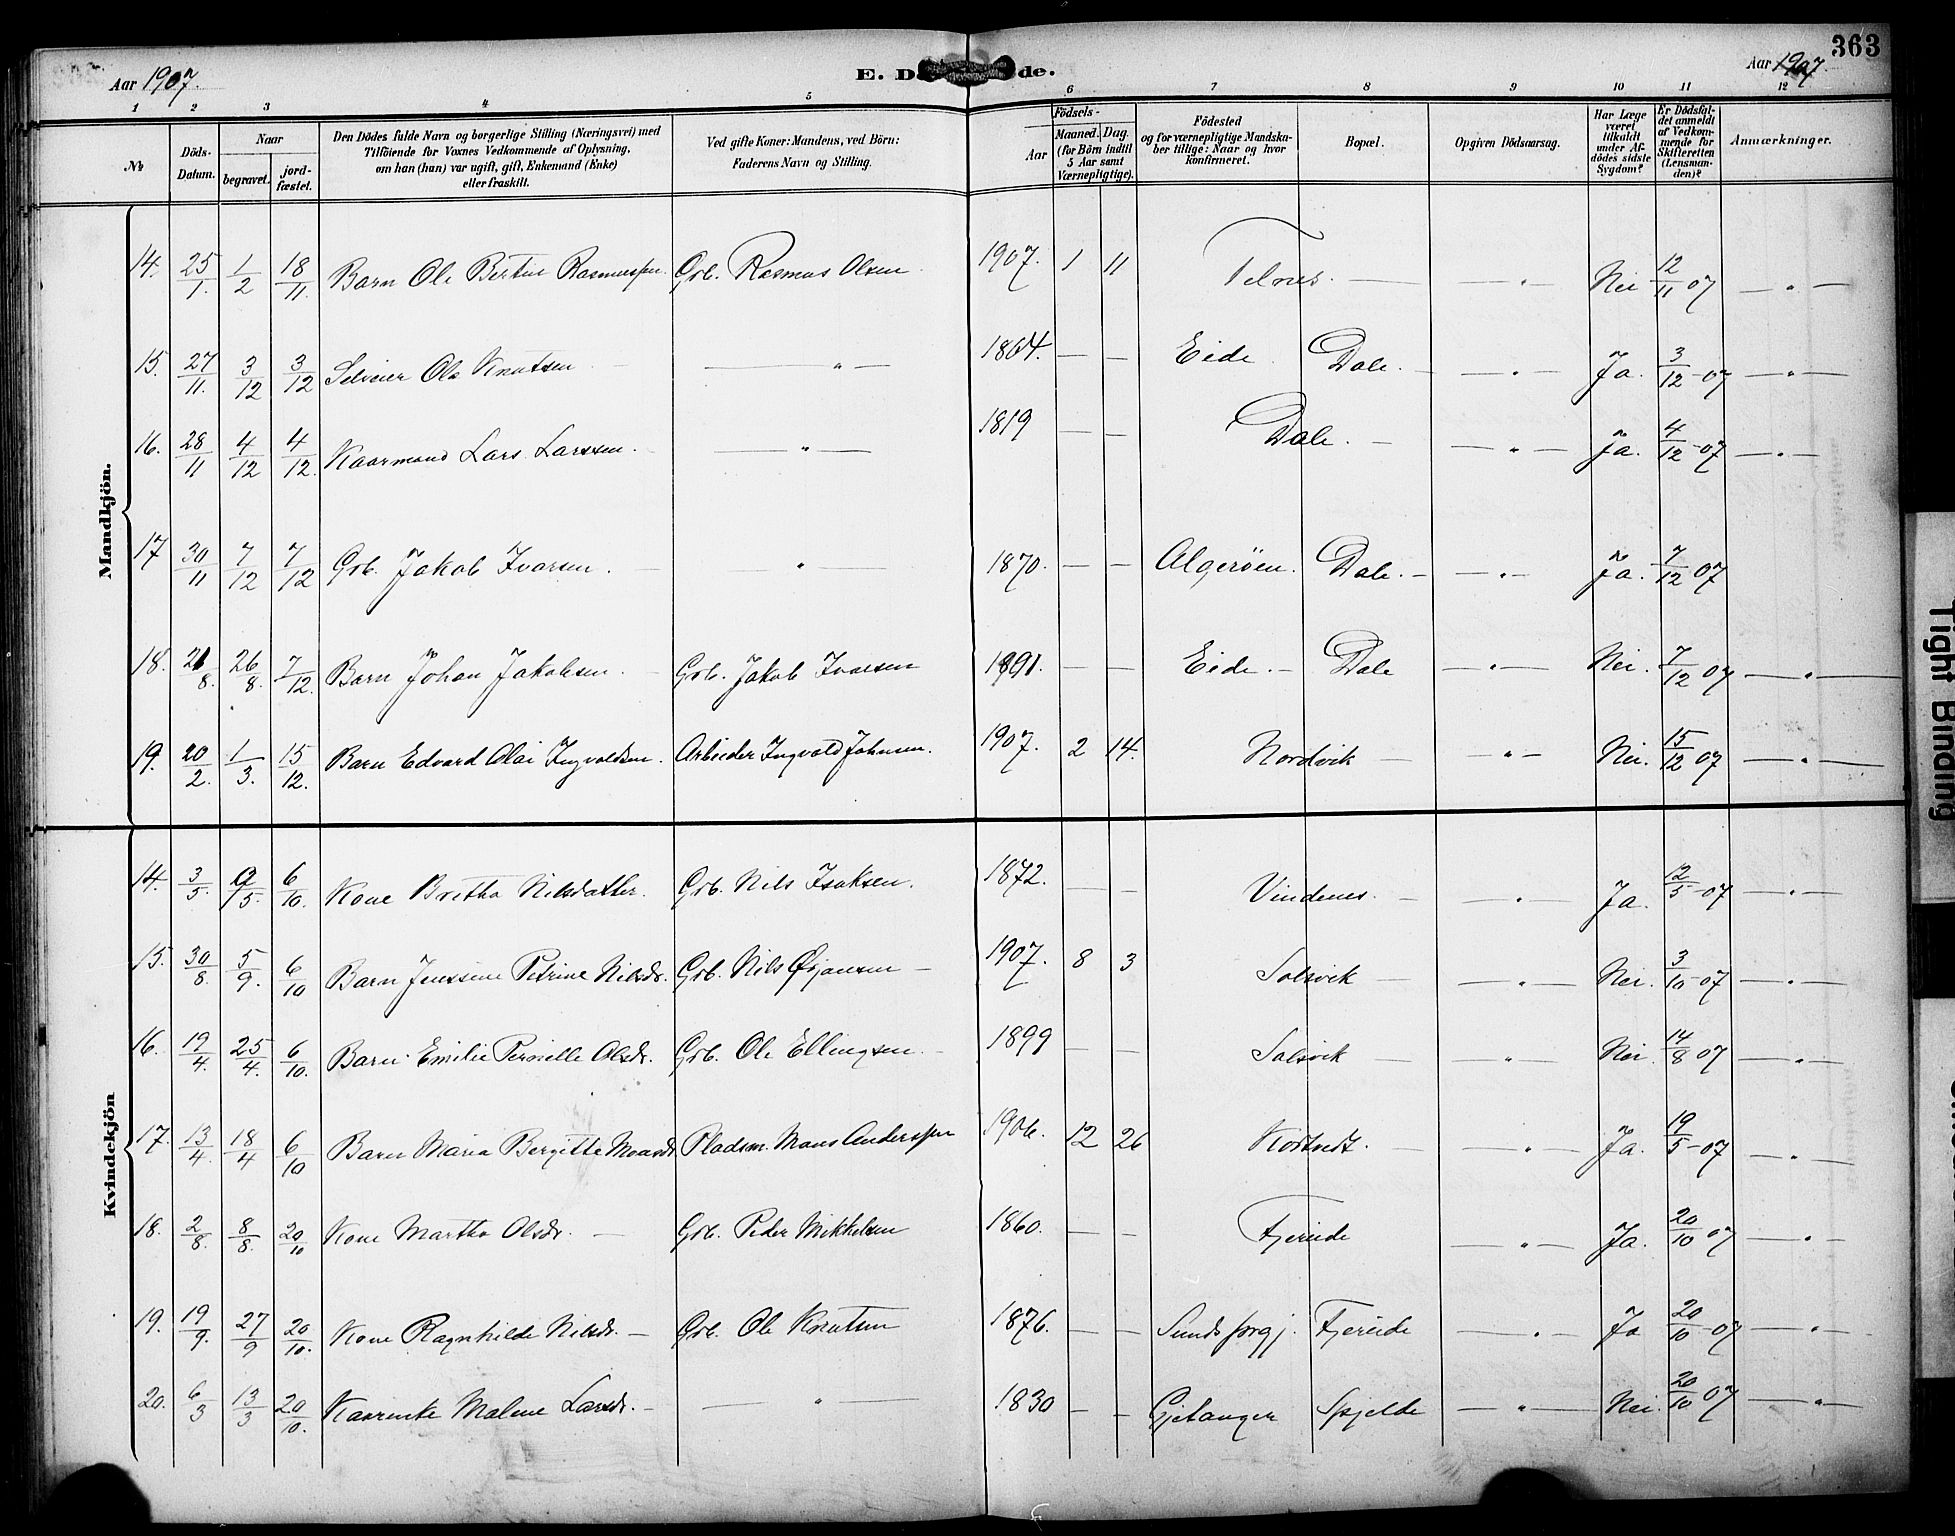 363
Aar 1907.
E. D de.
Aar 1907.
1 2 3 4 5 6 7 8 9 10 11 12
№ | Döds-Datum. | Naar begravet. | Naar jord-fæstet. | Den Dödes fulde Navn og borgerlige Stilling (Næringsvei) med Tilföiende for Voxnes Vedkommende af Oplysning, om han (hun) var ugift, gift, Enkemand (Enke) eller fraskilt. | Ved gifte Koner: Mandens, ved Börn: Faderens Navn og Stilling. | Födsels- Aar | Maaned. Dag. (for Börn indtil 5 Aar samt Værnepligtige). | Födested og for værnepligtige Mandska-ber tillige: Naar og hvor konfirmeret. | Bopæl. | Opgiven Dödsaarsag. | Har Læge været tilkaldt under Af-dödes sidste Sygdom? | Er Dödsfal-det anmeldt af Vedkom-mende for Skifteretten (Lensman-den)? | Anmærkninger.
Mandkjön.
14. 25/1. 1/2 18/11. Barn Ole Bertin Rasmussen Grb. Rasmus Olsen 1907. 1 11 Telnes. — — " — Nei 12/11 07 — " —
15. 27/11. 3/12 3/12 Selveier Ola Knutsen — " — 1864. — — Eide Dale. — — " — Ja. 3/12-07 — " —
16. 28/11 4/12 4/12. Kaarmand Lars Larssen. — " — 1819 — — Dale. — — " — Ja. 4/12-07 — " —
17 30/11 7/12 7/12 Grb. Jakob Ivarsen. — " — 1870. — — Algerøen. Dale. — — " — Ja. 7/12 07
18. 21/8. 26/8. 7/12. Barn Johan Jakobsen. Grb. Jakob Ivarsen 1891. — — Eide. — Dale — " — Nei. 7/12 07 — " —
19. 20/2. 1/3. 15/12. Barn Edvard Olai Ingvaldsen. Arbeider Ingvald Johnsen. 1907. 2 14. Nordvik — — " — Nei. 15/12 07 — " —
Kvindekjön
14. 3/5. /5. 6/10. Kone Britha Nilsdatter. Grb. Nils Isaksen. 1872. — — Vindenes. — — " — Ja. 12/5-07 — " —
15. 30/8. 5/9. 6/10 Barn Jenssine Petrine Nilsdr. Grb. Nils Ørjansen — 1907. 8 3 Solsvik — — " — Nei. 3/10-07 — " —
16. 19/4. 25/4. 6/10. Barn Emilie Pernille Olsdr. Grb. Ole Ellingsen. — 1899 — — Solsvik — " — Nei. 14/8 07 — " —
17. 13/4. 18/4 6/10 Barn Maria Bergitte Monsdr. Pladsm. Mons Anderssen 1906. 12 26 Kortvedt. — — " — Ja. 19/5-07 — " —
18. 2/8. 8/8. 20/10 Kone Martha Olsdr. — Grb. Peder Mikkelsen 1860. — — Fjereide — " — Ja. 20/10 07 — " —
19. 19/9. 27/9 20/10. Kone Ragnhilde Nilsdr. — Grb. Ole Knutsen 1876. — — Sunds prgj. Fjereide — " — Ja 20/10-07 — " —
20. 6/3 13/3 20/10. Kaarenke Malene Larsdr. — — " — 1830 — — Gjetanger Spjelde — " — Nei. 20/10 07 — " —
Tight Binding